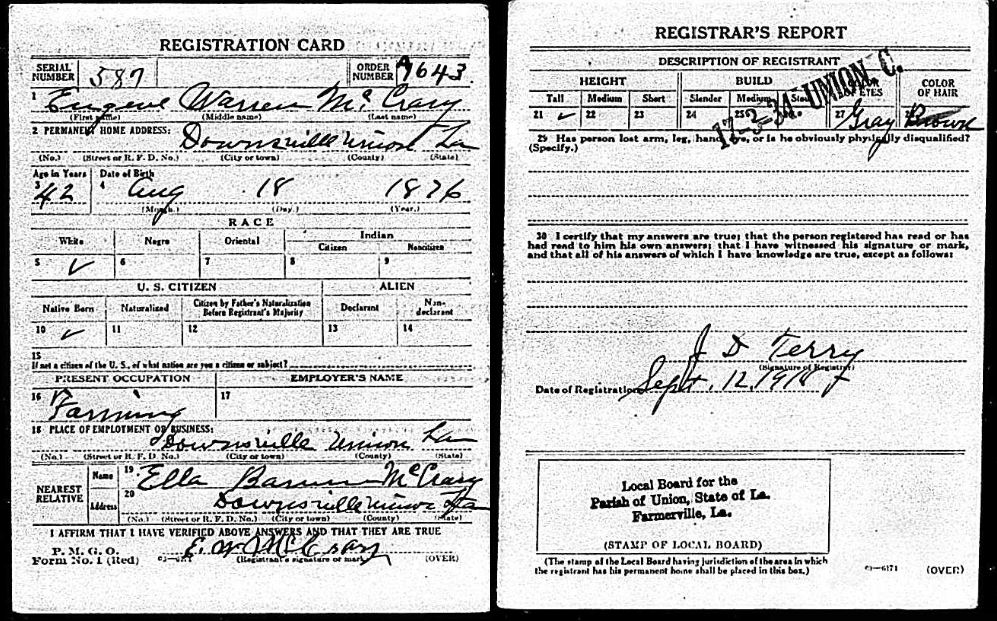 REGISTRATION CARD
SERIAL NUMBER 387 ORDER NUMBER A 643
1 Eugene Warren McCrary
(First name) (Middle name) (Last name)
2 PERMANENT HOME ADDRESS:
Downsville Union La
(No.) (Street or R. F. D. No.) (City or town) (County) (State)
Age in Years Date of Birth
3 42 4 Aug 18 1876
(Month.) (Day.) (Year.)
RACE
White Negro Oriental Indian
Citizen Noncitizen
5 ✓ 6 7 8 9
U. S. CITIZEN ALIEN
Native Born Naturalized Citizen by Father's Naturalization Before Registrant's Majority Declarant Non-declarant
10 ✓ 11 12 13 14
15
If not a citizen of the U. S., of what nation are you a citizen or subject?
PRESENT OCCUPATION EMPLOYER'S NAME
16 Farming 17
18 PLACE OF EMPLOYMENT OR BUSINESS:
Downsville Union La
(No.) (Street or R. F. D. No.) (City or town) (County) (State)
NEAREST RELATIVE Name 19 Ella McCrary
Address 20 Downsville Union La
(No.) (Street or R. F. D. No.) (City or town) (County) (State)
I AFFIRM THAT I HAVE VERIFIED ABOVE ANSWERS AND THAT THEY ARE TRUE
E. W. McCrary
P. M. G. O.
Form No. 1 (Red) (Registrant's signature or mark) (OVER)
REGISTRAR'S REPORT
DESCRIPTION OF REGISTRANT
HEIGHT BUILD COLOR OF EYES COLOR OF HAIR
Tall Medium Short Slender Medium Stout
21 ✓ 22 23 24 25 27 Gray Brown
17-3-34 UNION. C.
29 Has person lost arm, leg, hand, eye, or is he obviously physically disqualified?
(Specify.)
30 I certify that my answers are true; that the person registered has read or has
had read to him his own answers; that I have witnessed his signature or mark,
and that all of his answers of which I have knowledge are true, except as follows:
J D Terry
(Signature of Registrar)
Date of Registration Sept. 12, 1918
Local Board for the
Parish of Union, State of La.
Farmerville, La.
(STAMP OF LOCAL BOARD)
(The stamp of the Local Board having jurisdiction of the area in which
the registrant has his permanent home shall be placed in this box.)
03—6171 (OVER)